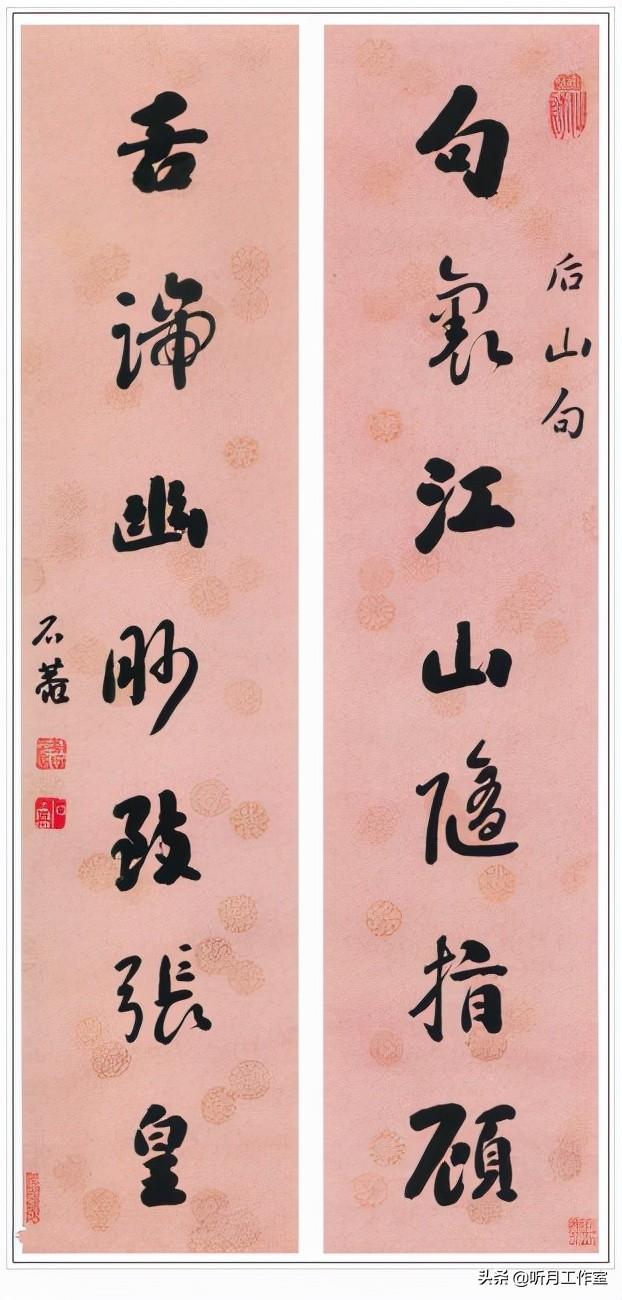 后山句
句裏江山隨指顧
舌端幽眇致張皇
石菴
头条 @听月工作室